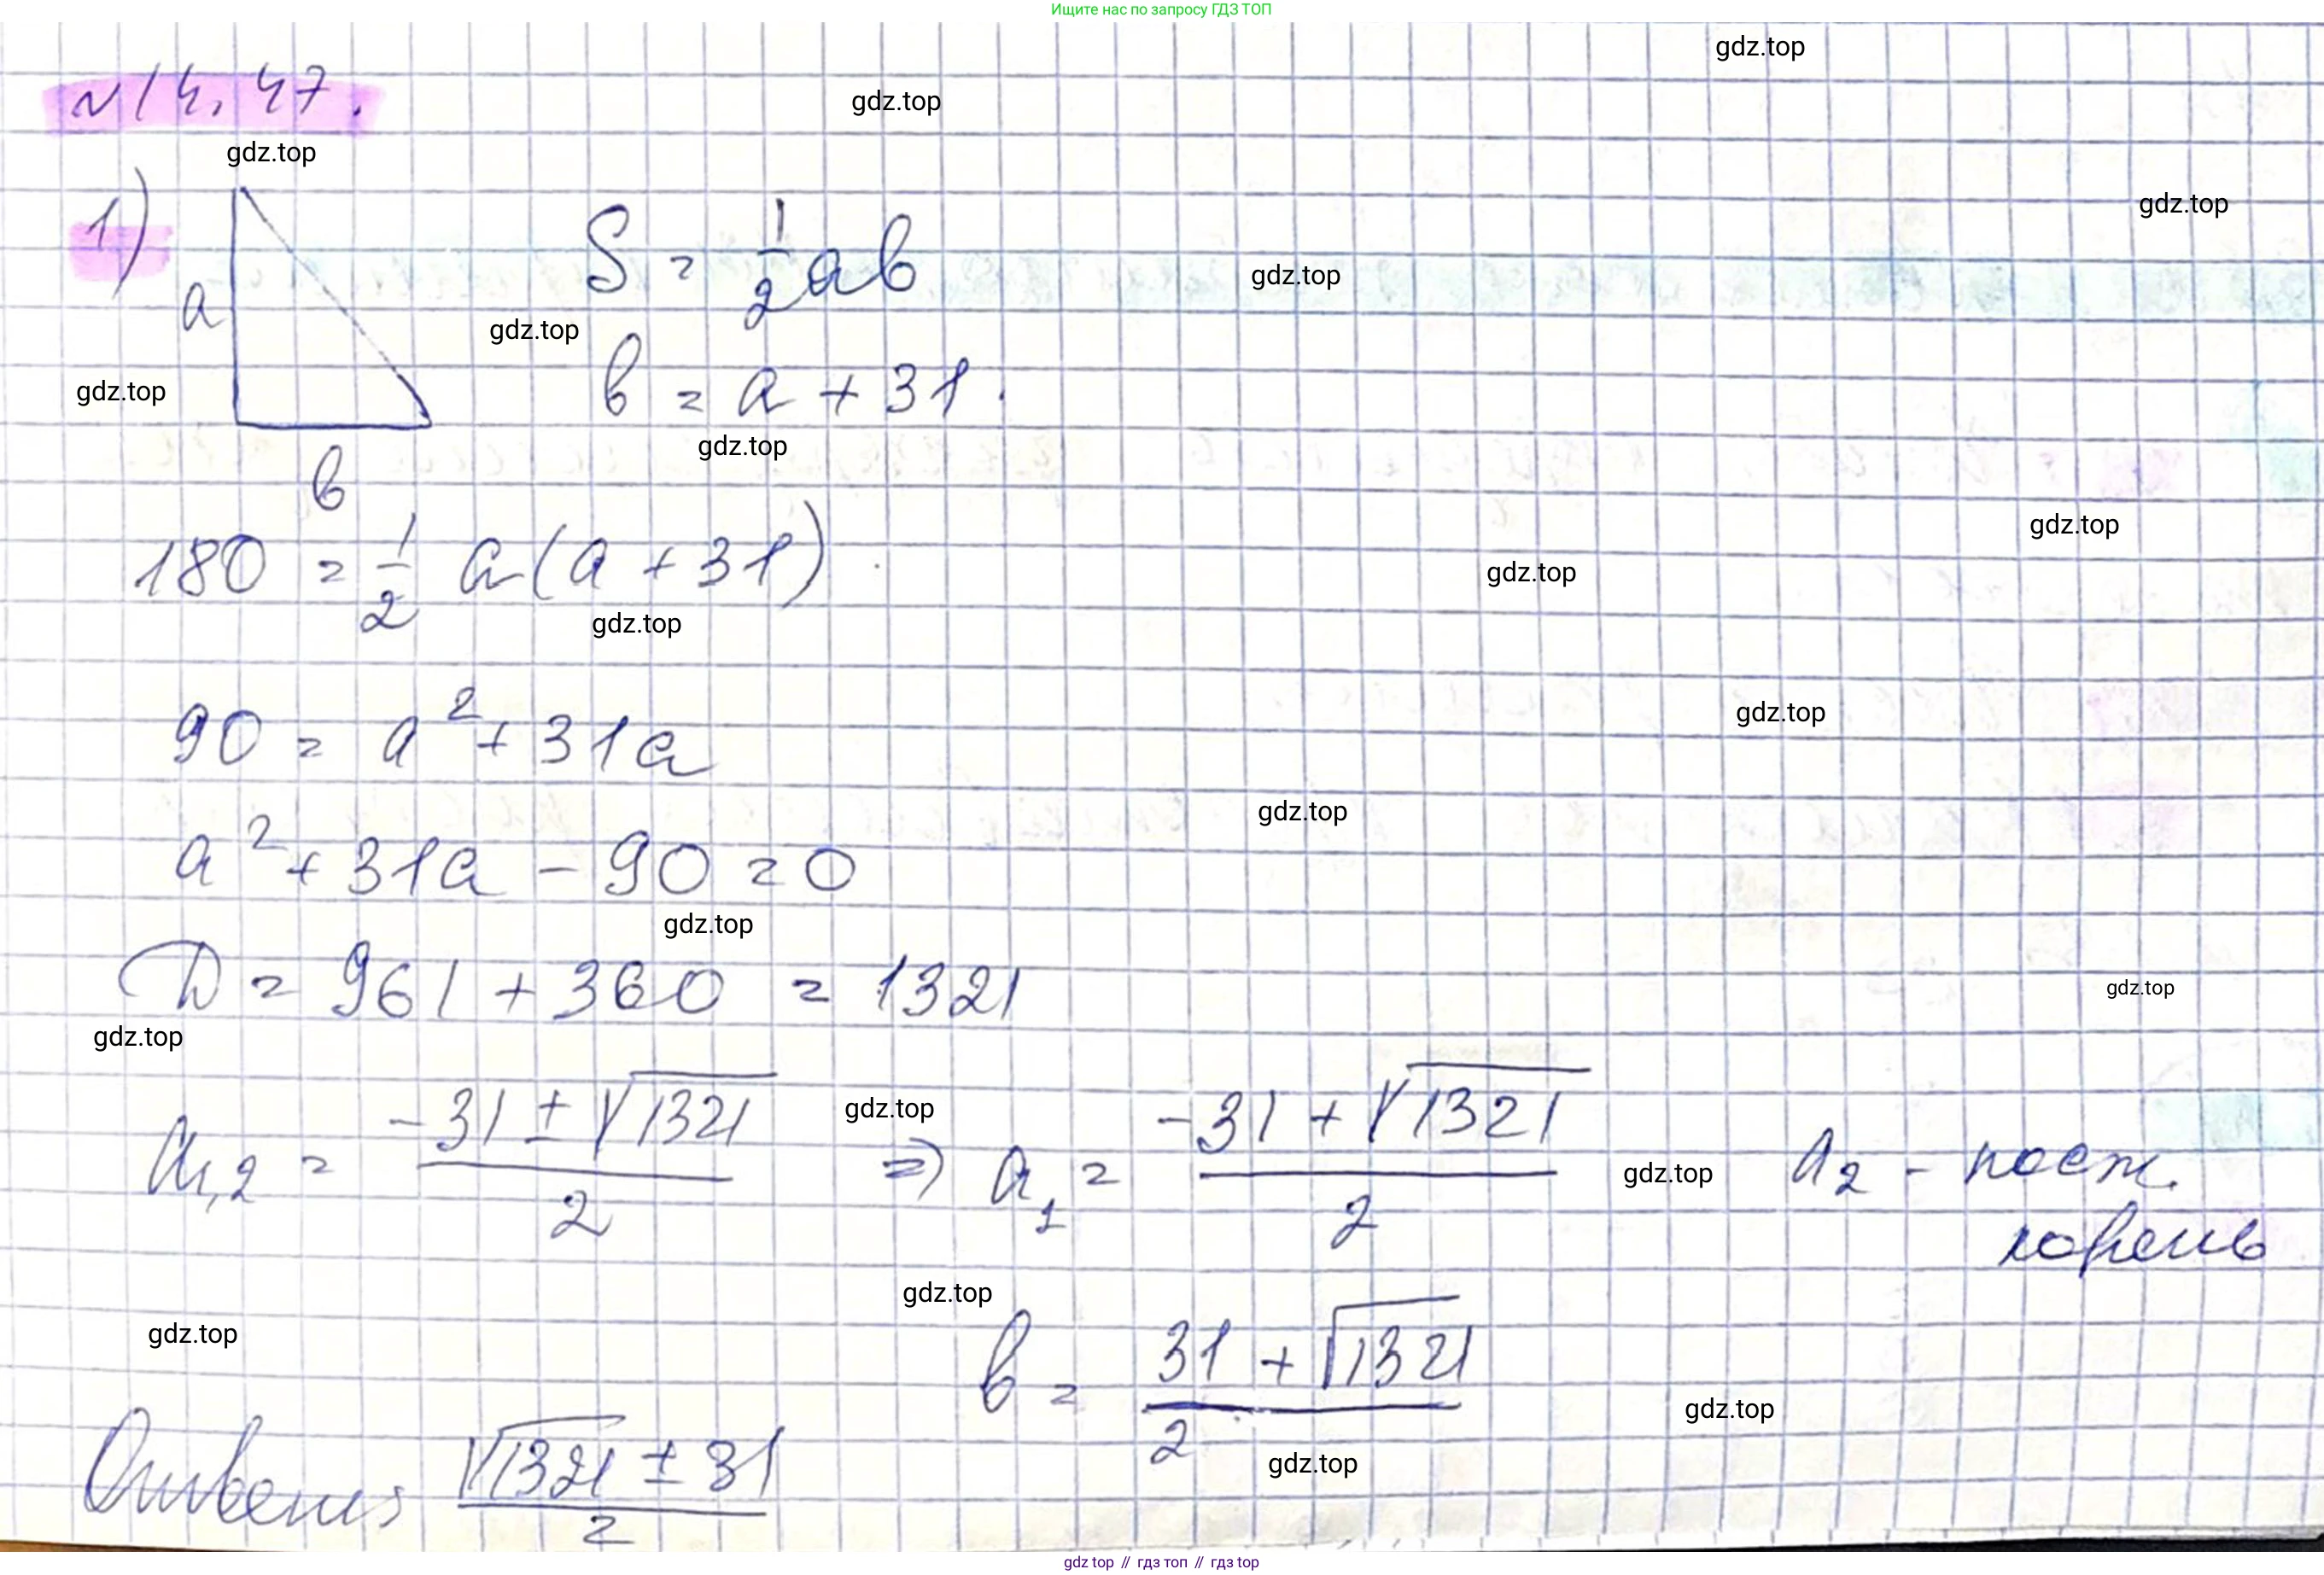 Ищите нас по запросу ГДЗ ТОП
gdz.top
gdz.top
№14.47.
gdz.top
gdz.top
1)
S = 1/2 ab
gdz.top
a
gdz.top
gdz.top
b = a + 31.
gdz.top
b
gdz.top
180 = 1/2 a(a + 31)
gdz.top
gdz.top
90 = a² + 31a
gdz.top
gdz.top
a² + 31a - 90 = 0
gdz.top
D = 961 + 360 = 1321
gdz.top
gdz.top
a1,2 = (-31 ± √1321)/2 gdz.top => a1 = (-31 + √1321)/2 gdz.top a2 - пост.
корень
gdz.top
gdz.top
b = (31 + √1321)/2
gdz.top
gdz.top
Ответ: (√1321 ± 31)/2
gdz top // гдз топ // гдз top